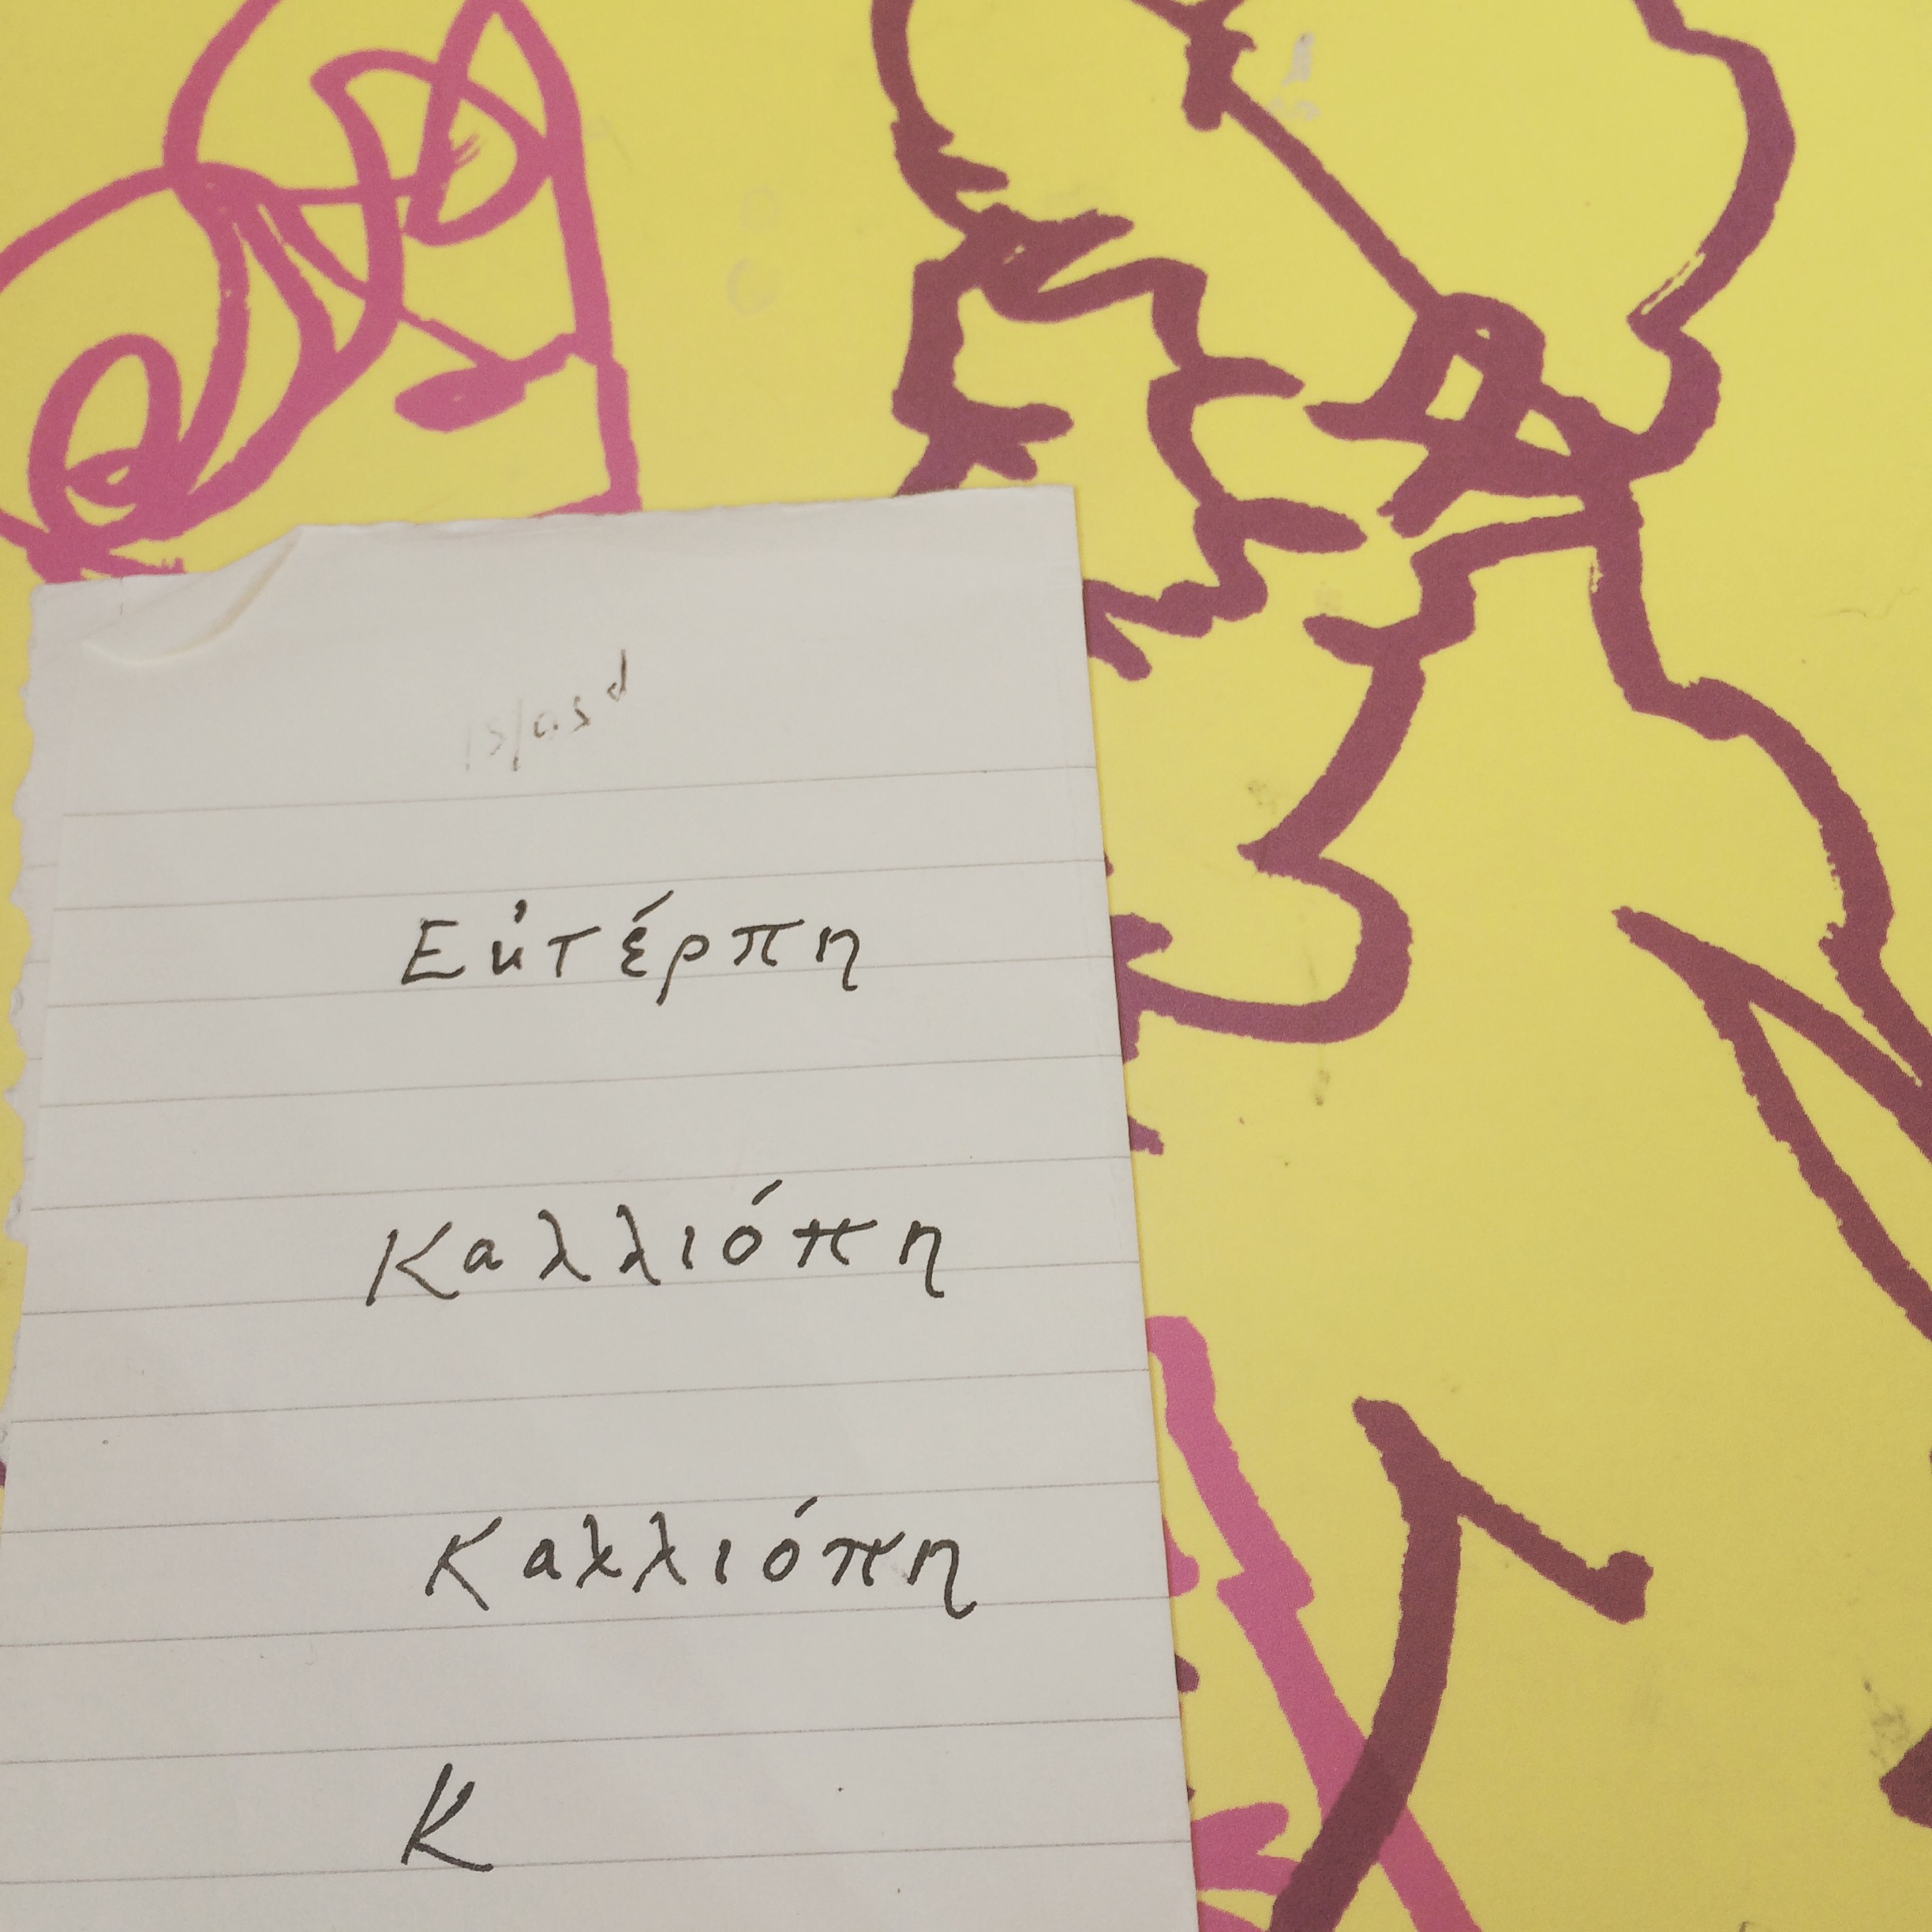 Εὐτέρπη
Καλλιόπη
Καλλιόπη
Κ